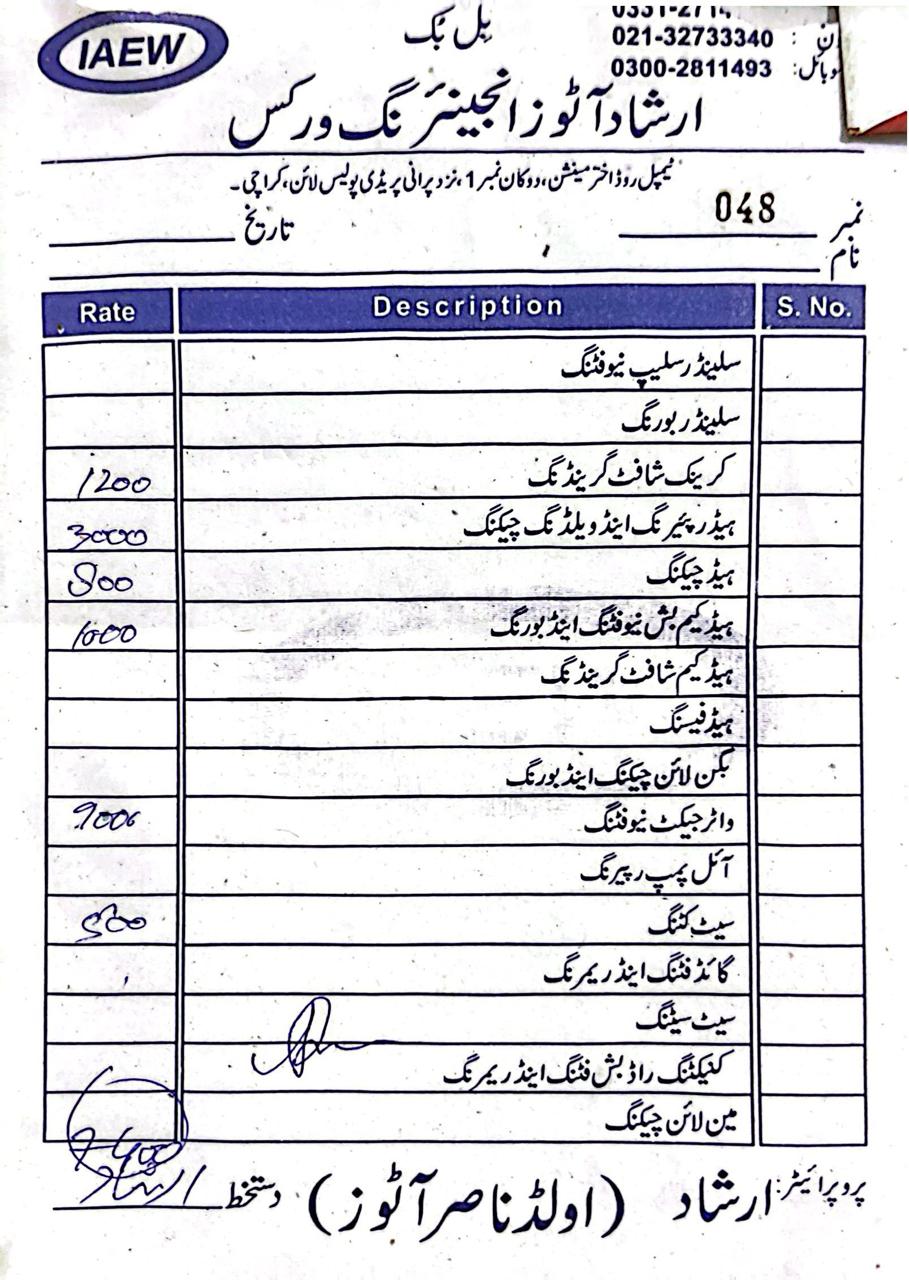 IAEW
بِل بُک
021-32733340
موبائل: 0300-2811493
ارشاد آٹوز انجینئرنگ ورکس
ٹیمپل روڈ اختر مینشن، دوکان نمبر 1، نزد پرانی پریڈی پولیس لائن، کراچی۔
نمبر 048 تاریخ
نام
Rate Description S. No.
سلینڈر سلیپ نیو فٹنگ
سلینڈر بورنگ
کرینک شافٹ گرینڈنگ 1200
ہیڈ رپئیرنگ اینڈ ویلڈنگ چیکنگ 3000
ہیڈ چیکنگ 800
ہیڈ کیم بش نیو فٹنگ اینڈ بورنگ 1000
ہیڈ کیم شافٹ گرینڈنگ
ہیڈ فیسنگ
بگن لائن چیکنگ اینڈ بورنگ
واٹر جیکٹ نیو فٹنگ 900
آئل پمپ رپیرنگ
سیٹ کٹنگ 500
گائڈ فٹنگ اینڈ ریمرنگ
سیٹ سیٹنگ
کنیکٹنگ راڈ بش فٹنگ اینڈ ریمرنگ
مین لائن چیکنگ
پروپرائیٹر: ارشاد (اولڈ ناصر آٹوز) دستخط ارشاد